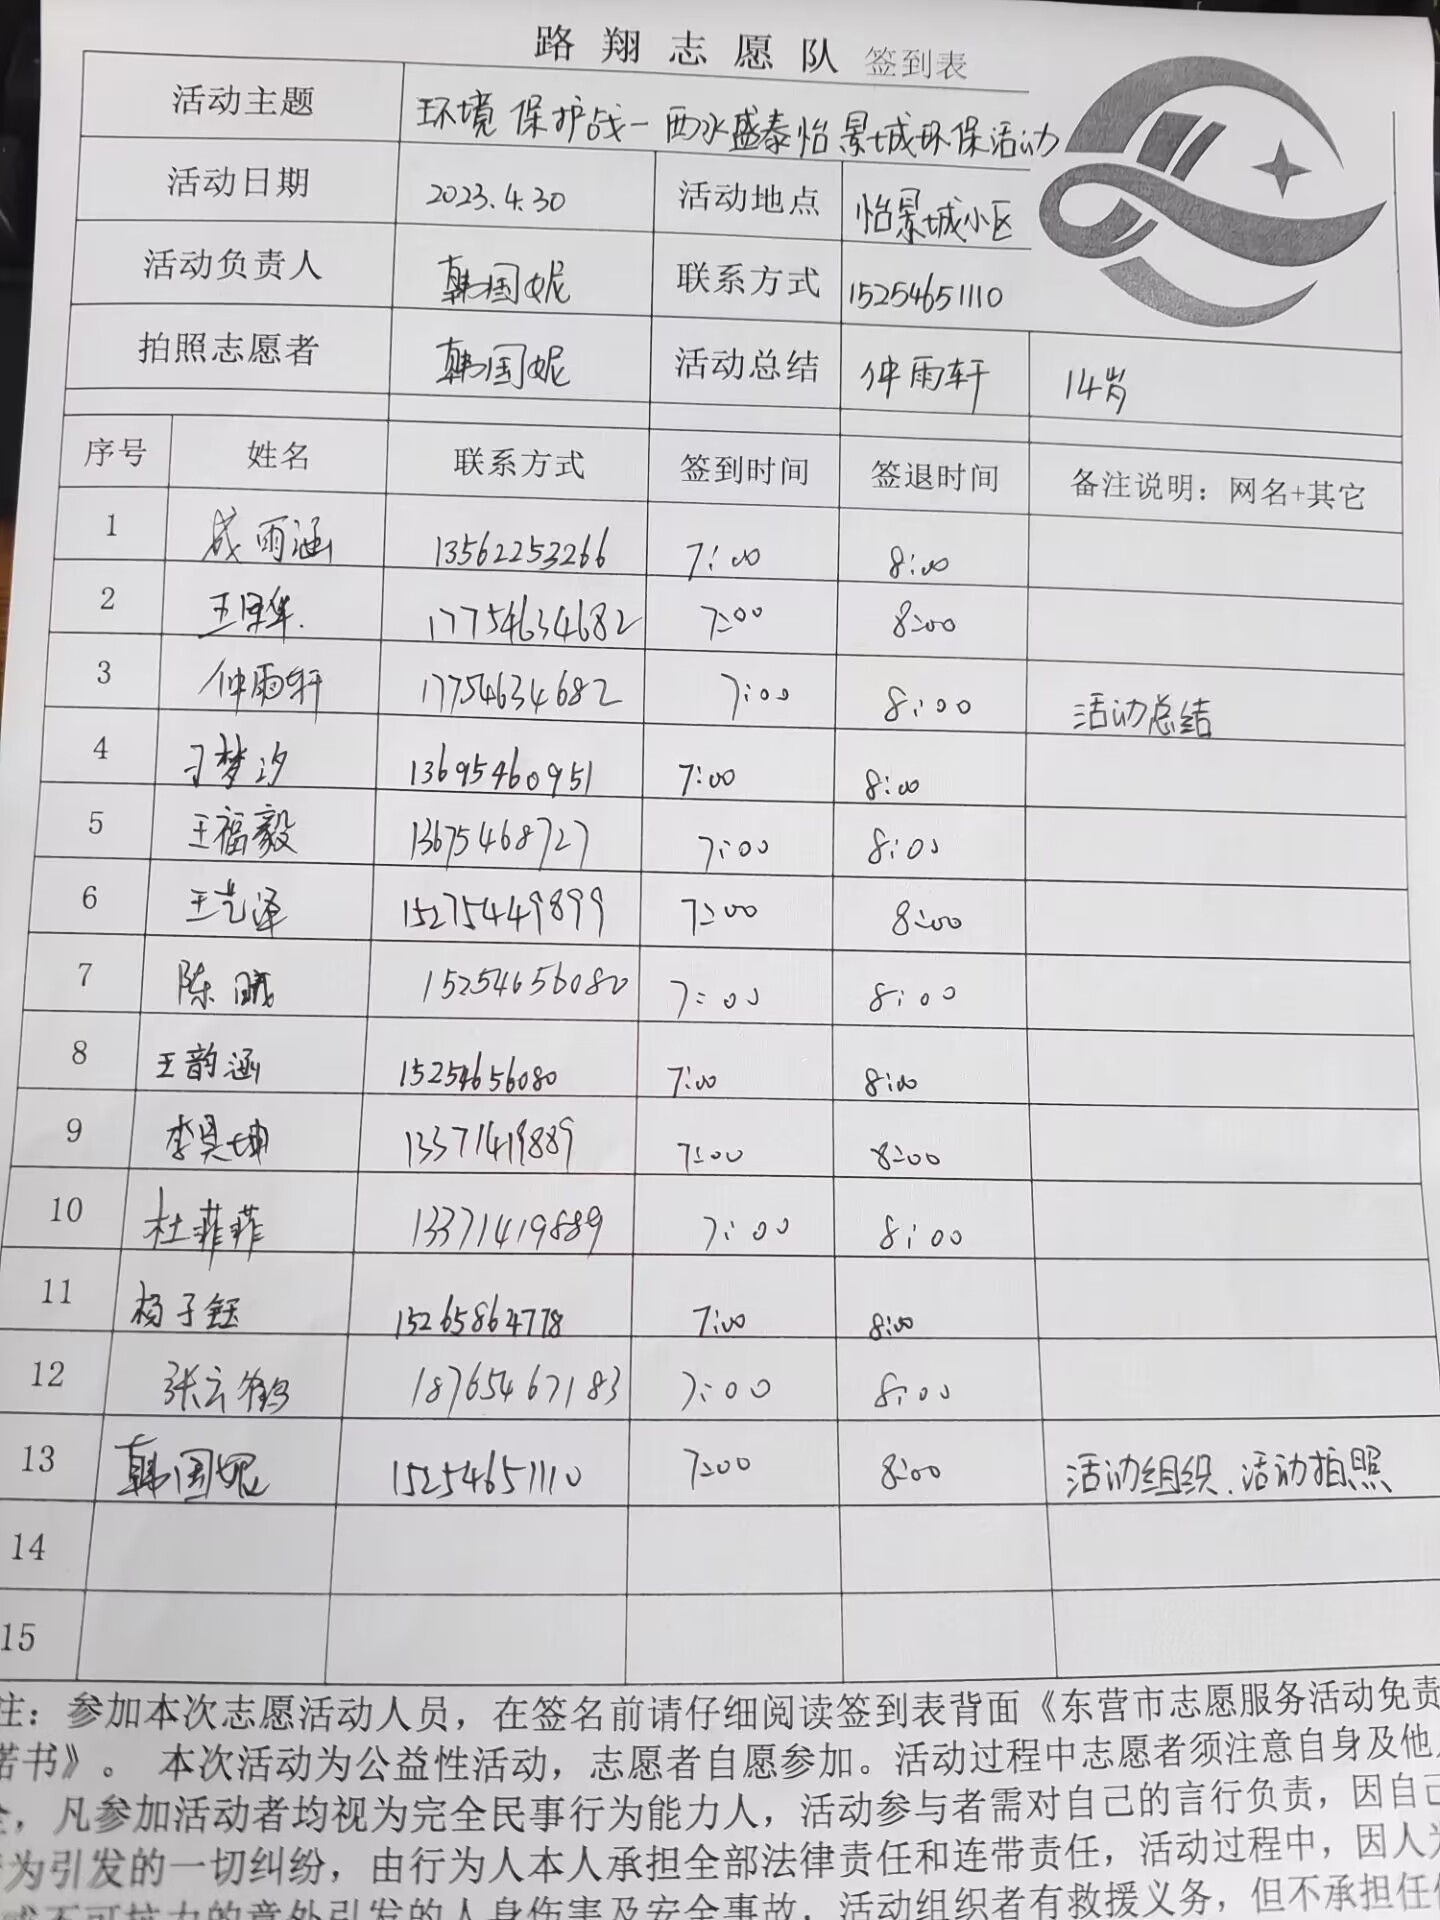 路翔志愿队 签到表
活动主题 环境保护战一西水盛泰怡景城环保活动
活动日期 2023.4.30 活动地点 怡景城小区
活动负责人 韩国妮 联系方式 15254651110
拍照志愿者 韩国妮 活动总结 仲雨轩 14岁
序号 姓名 联系方式 签到时间 签退时间 备注说明：网名+其它
1 成雨涵 13562253266 7:00 8:00
2 17754634682 7:00 8:00
3 仲雨轩 17754634682 7:00 8:00 活动总结
4 刁梦汐 13695460951 7:00 8:00
5 王福毅 13675468727 7:00 8:00
6 王艺泽 15275449899 7:00 8:00
7 陈曦 15254656080 7:00 8:00
8 王韵涵 15254656080 7:00 8:00
9 李昊坤 13371419889 7:00 8:00
10 杜菲菲 13371419889 7:00 8:00
11 杨子钰 15265864778 7:00 8:00
12 张云鹤 18765467183 7:00 8:00
13 韩国妮 15254651110 7:00 8:00 活动组织、活动拍照
14
15
注：参加本次志愿活动人员，在签名前请仔细阅读签到表背面《东营市志愿服务活动免责
诺书》。 本次活动为公益性活动，志愿者自愿参加。活动过程中志愿者须注意自身及他
，凡参加活动者均视为完全民事行为能力人，活动参与者需对自己的言行负责，因自己
为引发的一切纠纷，由行为人本人承担全部法律责任和连带责任，活动过程中，因人为
或不可抗力的意外引发的人身伤害及安全事故，活动组织者有救援义务，但不承担任